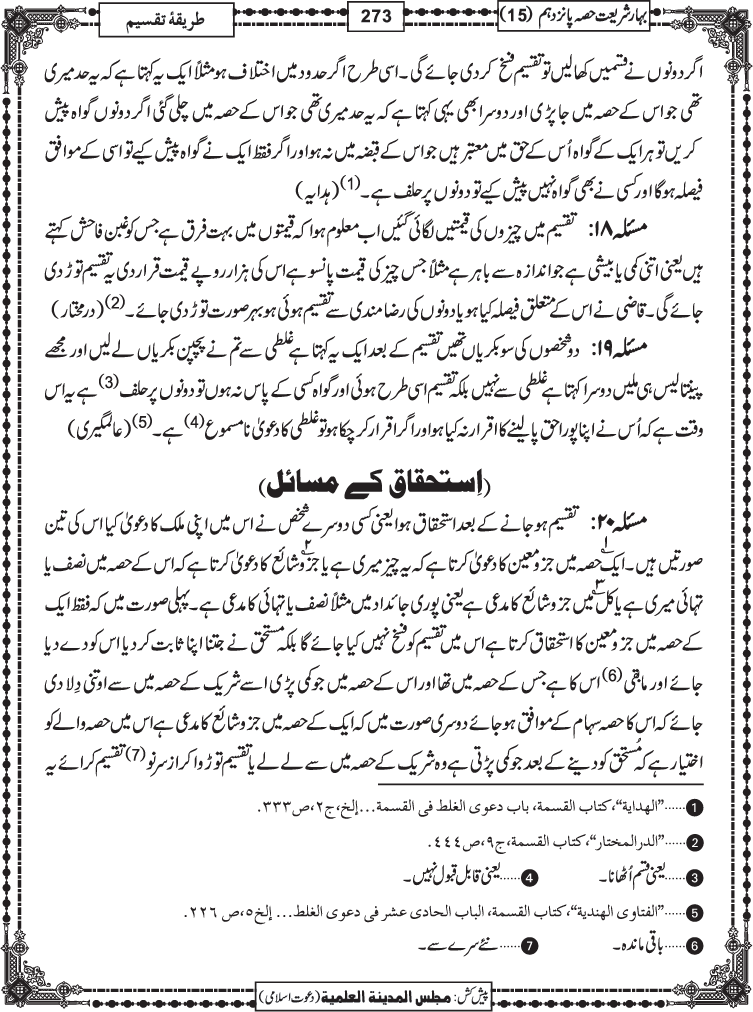 بہارِ شریعت حصہ پانزدہم (15)
273
طریقۂ تقسیم
اگر دونوں نے قسمیں کھالیں تو تقسیم فسخ کردی جائے گی۔ اسی طرح اگر حدود میں اختلاف ہو مثلاً ایک یہ کہتا ہے کہ یہ حد میری
تھی جو اس کے حصہ میں جا پڑی اور دوسرا بھی یہی کہتا ہے کہ یہ حد میری تھی جو اس کے حصہ میں چلی گئی اگر دونوں گواہ پیش
کریں تو ہر ایک کے گواہ اُس کے حق میں معتبر ہیں جو اس کے قبضہ میں نہ ہو اور اگر فقط ایک نے گواہ پیش کیے تو اسی کے موافق
فیصلہ ہوگا اور کسی نے بھی گواہ نہیں پیش کیے تو دونوں پر حلف ہے۔(1) (ہدایہ)
مسئلہ ۱۸: تقسیم میں چیزوں کی قیمتیں لگائی گئیں اب معلوم ہوا کہ قیمتوں میں بہت فرق ہے جس کو غبن فاحش کہتے
ہیں یعنی اتنی کمی یا بیشی ہے جو اندازہ سے باہر ہے مثلاً جس چیز کی قیمت پانسو ہے اس کی ہزار روپے قیمت قرار دی یہ تقسیم توڑ دی
جائے گی۔ قاضی نے اس کے متعلق فیصلہ کیا ہو یا دونوں کی رضا مندی سے تقسیم ہوئی ہو بہر صورت توڑ دی جائے۔(2) (درمختار)
مسئلہ ۱۹: دو شخصوں کی سو بکریاں تھیں تقسیم کے بعد ایک یہ کہتا ہے غلطی سے تم نے پچپن بکریاں لے لیں اور مجھے
پینتالیس ہی ملیں دوسرا کہتا ہے غلطی سے نہیں بلکہ تقسیم اسی طرح ہوئی اور گواہ کسی کے پاس نہ ہوں تو دونوں پر حلف(3) ہے یہ اس
وقت ہے کہ اُس نے اپنا پورا حق پالینے کا اقرار نہ کیا ہو اور اگر اقرار کرچکا ہو تو غلطی کا دعویٰ نا مسموع(4) ہے۔(5) (عالمگیری)
(اِستحقاق کے مسائل)
مسئلہ ۲۰: تقسیم ہو جانے کے بعد استحقاق ہوا یعنی کسی دوسرے شخص نے اس میں اپنی ملک کا دعویٰ کیا اس کی تین
صورتیں ہیں۔ ۱ ایک حصہ میں جزو معین کا دعویٰ کرتا ہے کہ یہ چیز میری ہے یا ۲ جزو شائع کا دعویٰ کرتا ہے کہ اس کے حصہ میں نصف یا
تہائی میری ہے یا ۳ کل میں جزو شائع کا مدعی ہے یعنی پوری جائداد میں مثلاً نصف یا تہائی کا مدعی ہے۔ پہلی صورت میں کہ فقط ایک
کے حصہ میں جزو معین کا استحقاق کرتا ہے اس میں تقسیم کو فسخ نہیں کیا جائے گا بلکہ مستحق نے جتنا اپنا ثابت کردیا اس کو دے دیا
جائے اور مابقی(6) اس کا ہے جس کے حصہ میں تھا اور اس کے حصہ میں جو کمی پڑی اسے شریک کے حصہ میں سے اوتنی دِلا دی
جائے کہ اس کا حصہ سہام کے موافق ہو جائے دوسری صورت میں کہ ایک کے حصہ میں جزو شائع کا مدعی ہے اس میں حصہ والے کو
اختیار ہے کہ مُستحق کو دینے کے بعد جو کمی پڑتی ہے وہ شریک کے حصہ میں سے لے لے یا تقسیم توڑوا کر از سرِنو(7) تقسیم کرائے یہ
1 ......"الهداية"، كتاب القسمة، باب دعوى الغلط فى القسمة...إلخ، ج۲، ص۳۳۳.
2 ......"الدرالمختار"، كتاب القسمة، ج۹، ص٤٤٤.
3 ......یعنی قسم اُٹھانا۔ 4 ......یعنی قابل قبول نہیں۔
5 ......"الفتاوى الهندية"، كتاب القسمة، الباب الحادى عشر فى دعوى الغلط... إلخ، ج٥، ص ۲۲٦.
6 ......باقی ماندہ۔ 7 ......نئے سرے سے۔
پیش کش: مجلس المدينة العلمية (دعوتِ اسلامی)